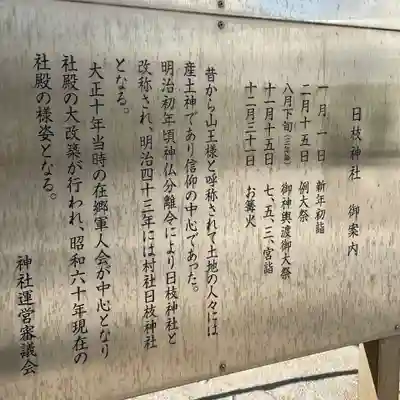 日枝神社 御案内
一月一日 新年初詣
二月十五日 例大祭
八月下旬 御神輿渡御大祭
十一月十五日 七、五、三、宮詣
十二月三十一日 お篝火
昔から山王様と呼称されて土地の人々には
産土神であり信仰の中心であった。
明治初年頃神仏分離令により日枝神社と
改称され、明治四十三年には村社日枝神社
となる。
大正十年当時の在郷軍人会が中心となり
社殿の大改築が行われ、昭和六十年現在の
社殿の様姿となる。
神社運営審議会